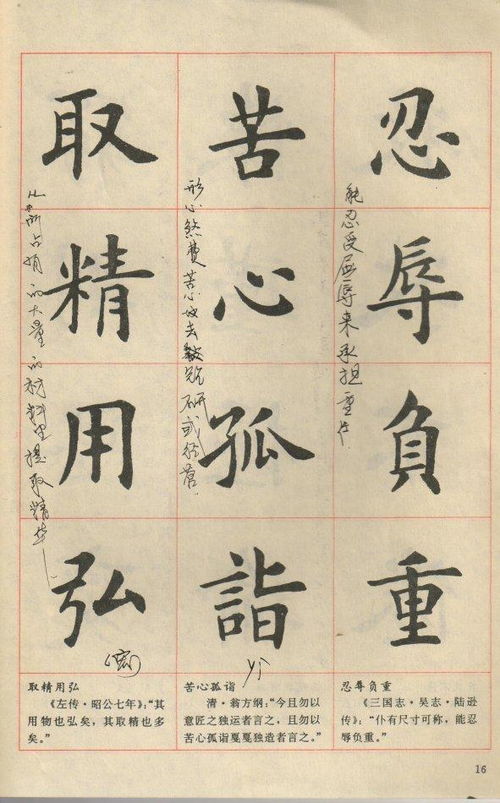 忍辱负重
能忍受屈辱来承担重任
苦心孤诣
形心煞费苦心地去钻研或经营
yì
取精用弘
从所占有的大量的材料里提取精华
(宏)
忍辱负重
《三国志·吴志·陆逊
传》:“仆有尺寸可称,能忍
辱负重。”
苦心孤诣
清·翁方纲:“今且勿以
意匠之独运者言之,且勿以
苦心孤诣戛戛独造者言之。”
取精用弘
《左传·昭公七年》:“其
用物也弘矣,其取精也多
矣。”
16